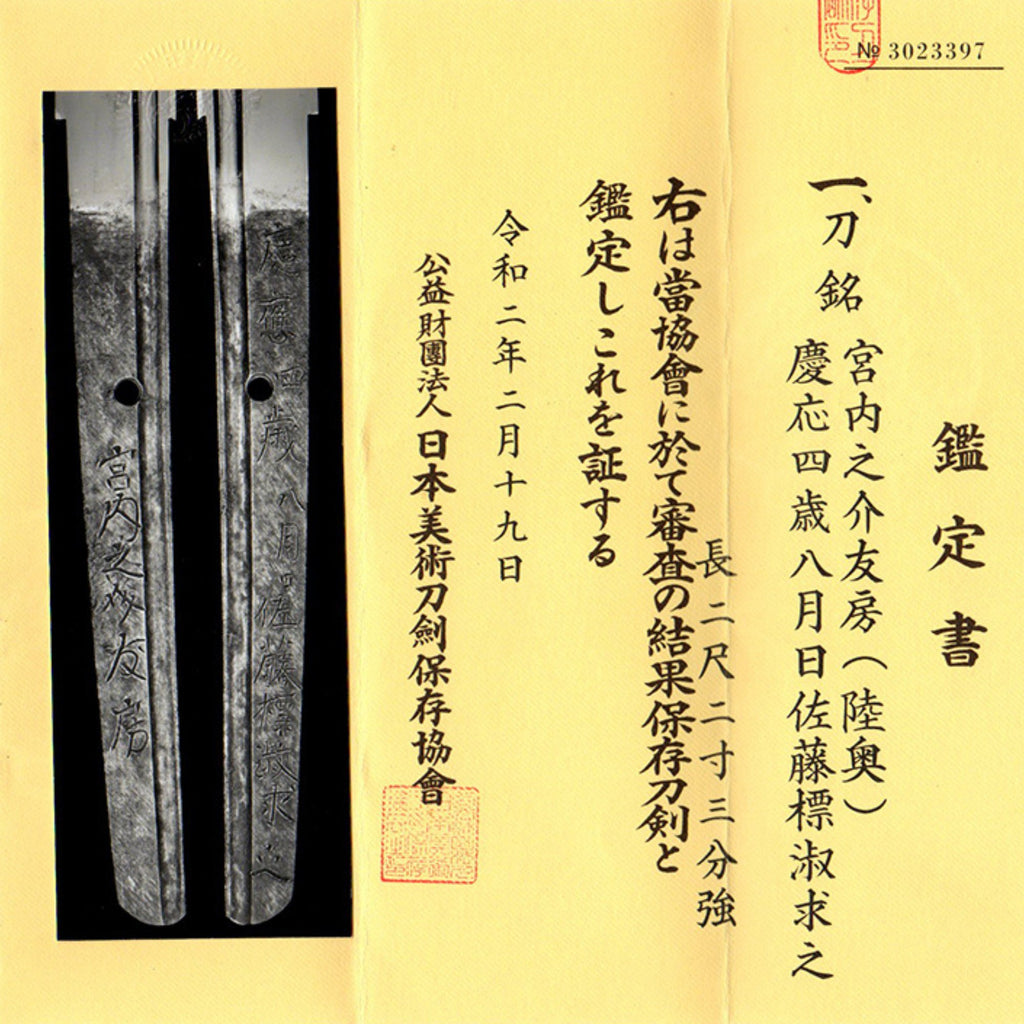 № 3023397
鑑定書
一、刀 銘
宮内之介友房(陸奥)
慶応四歳八月日佐藤標淑求之
長二尺二寸三分強
右は當協會に於て審査の結果保存刀剣と
鑑定しこれを証する
令和二年二月十九日
公益財團法人 日本美術刀劍保存協會
慶應四歳八月日佐藤標淑求之
宮内之介友房